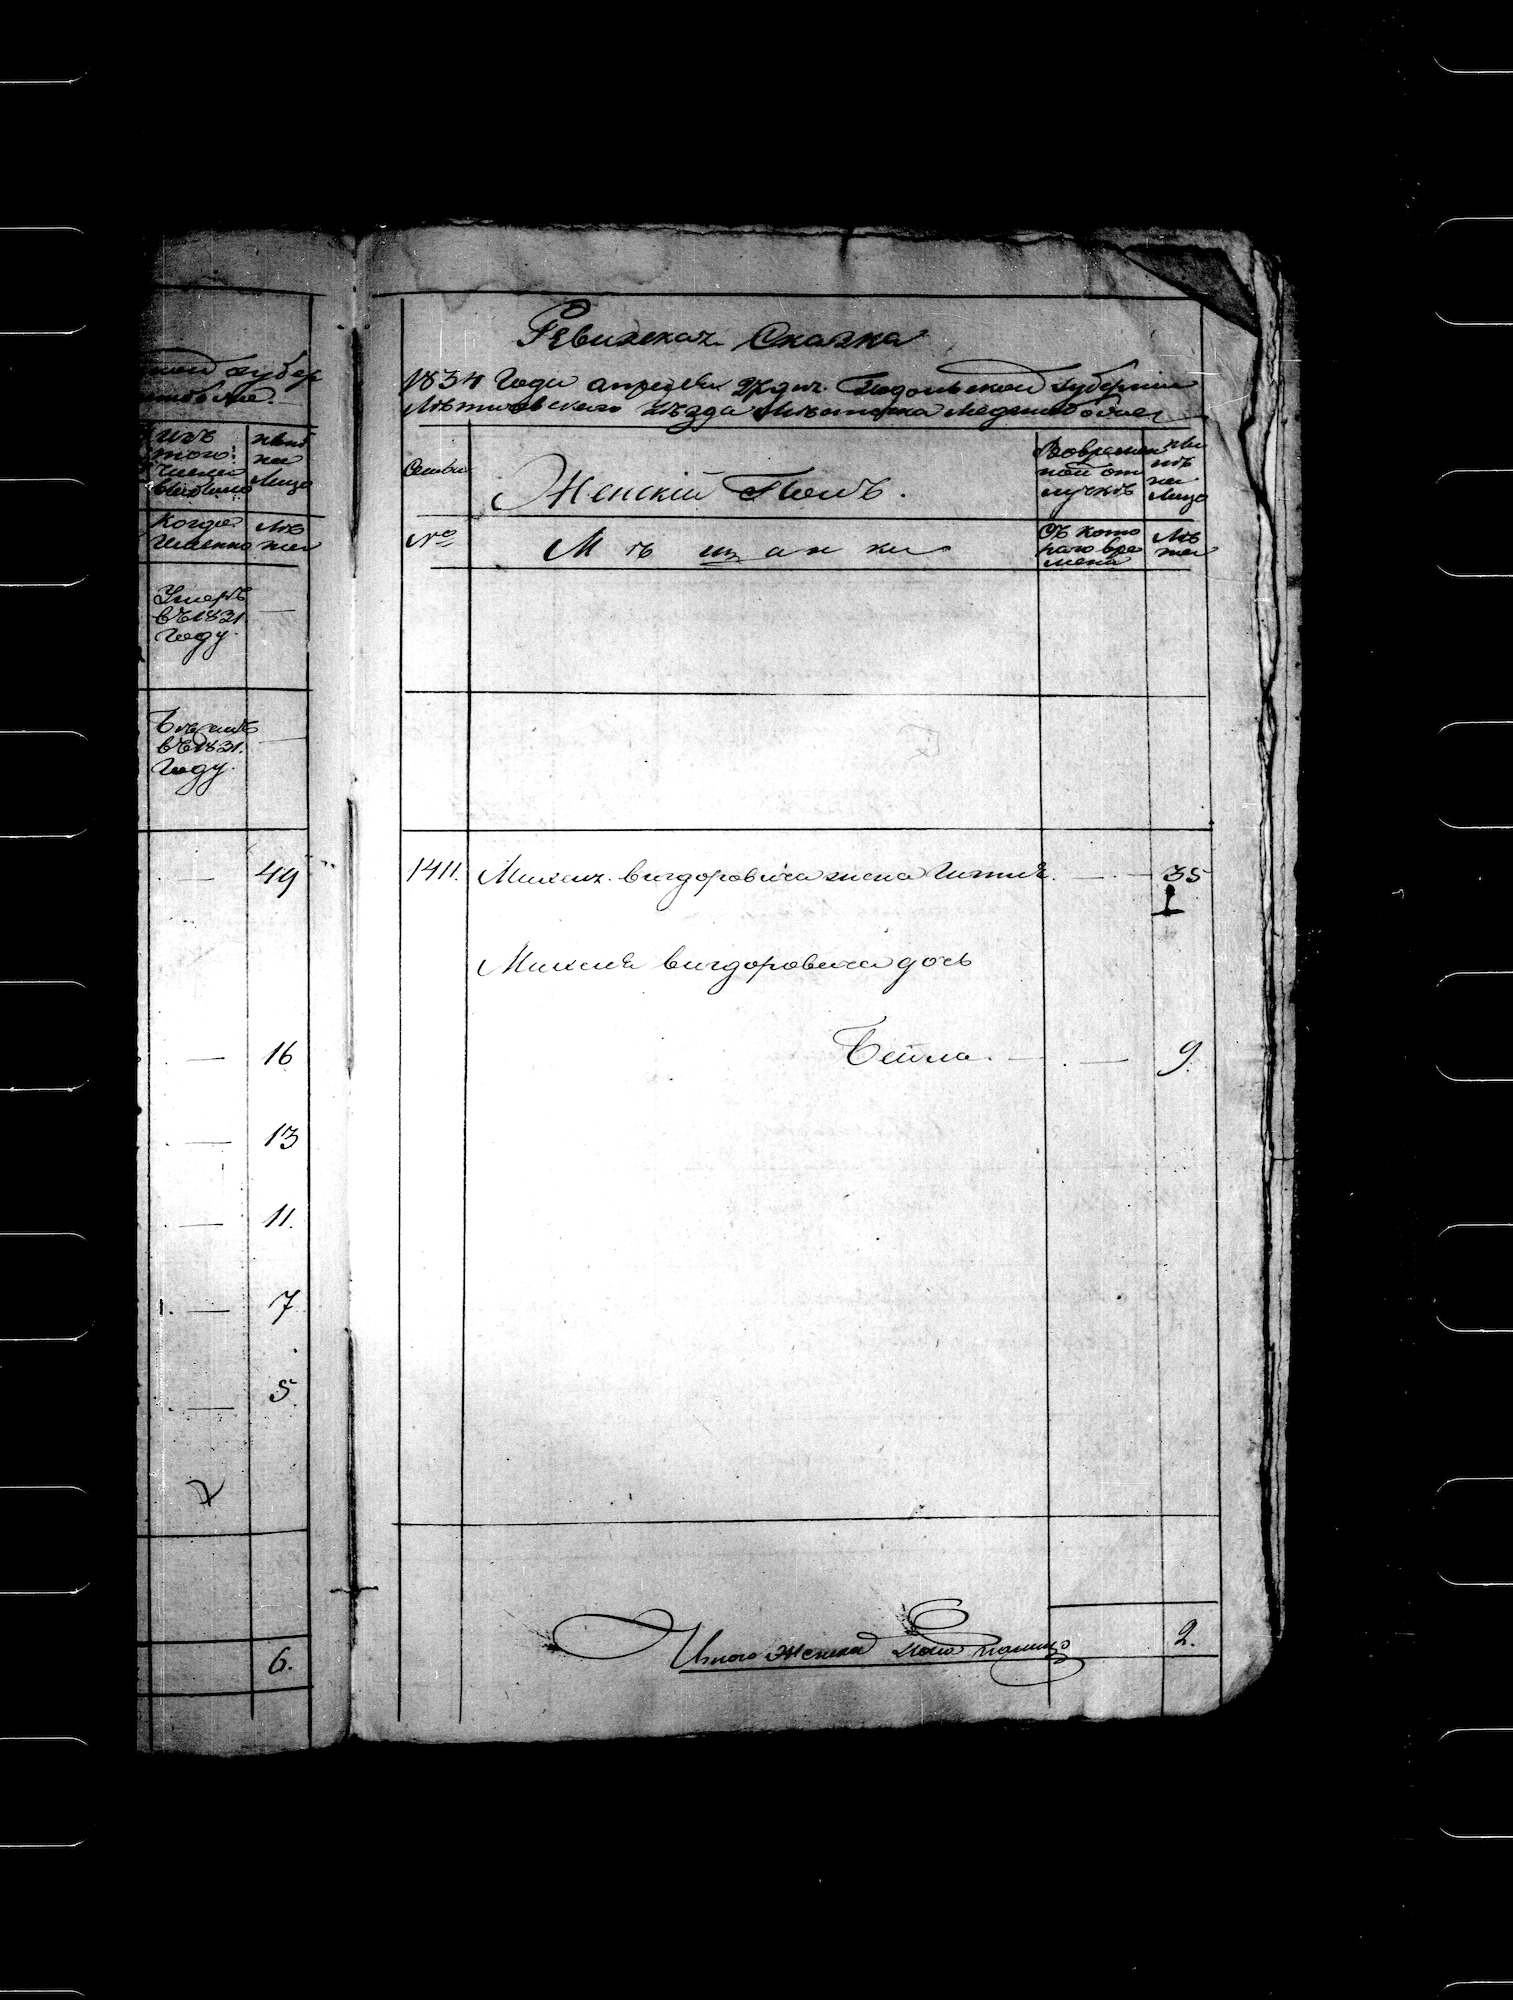 ной губер
жибоже.
изъ
того
числа
выбыло
ныне
на
лицо
Когда
именно
Лѣ
та
Умеръ
въ 1831
году.
—
Бѣжалъ
въ 1831.
году.
—
— 49
— 16
— 13
— 11.
— 7
— 5
6.
Ревизская Сказка
1834 Года апреля 27 дня. Подольской губернiи
Лѣтичевского уѣзда Мѣстечка Меджибожа
Семьи
Женскiй Полъ.
Вовремен
ной от
лучкѣ
ны
нѣ
на
лицо
№
Мѣщанки
Съ кото
раго вре
мени
Лѣ
та
1411. вигдоровича жена — 35
1
вигдоровича дочь
Бейла. — 9.
Итого женска пола налицо 2.